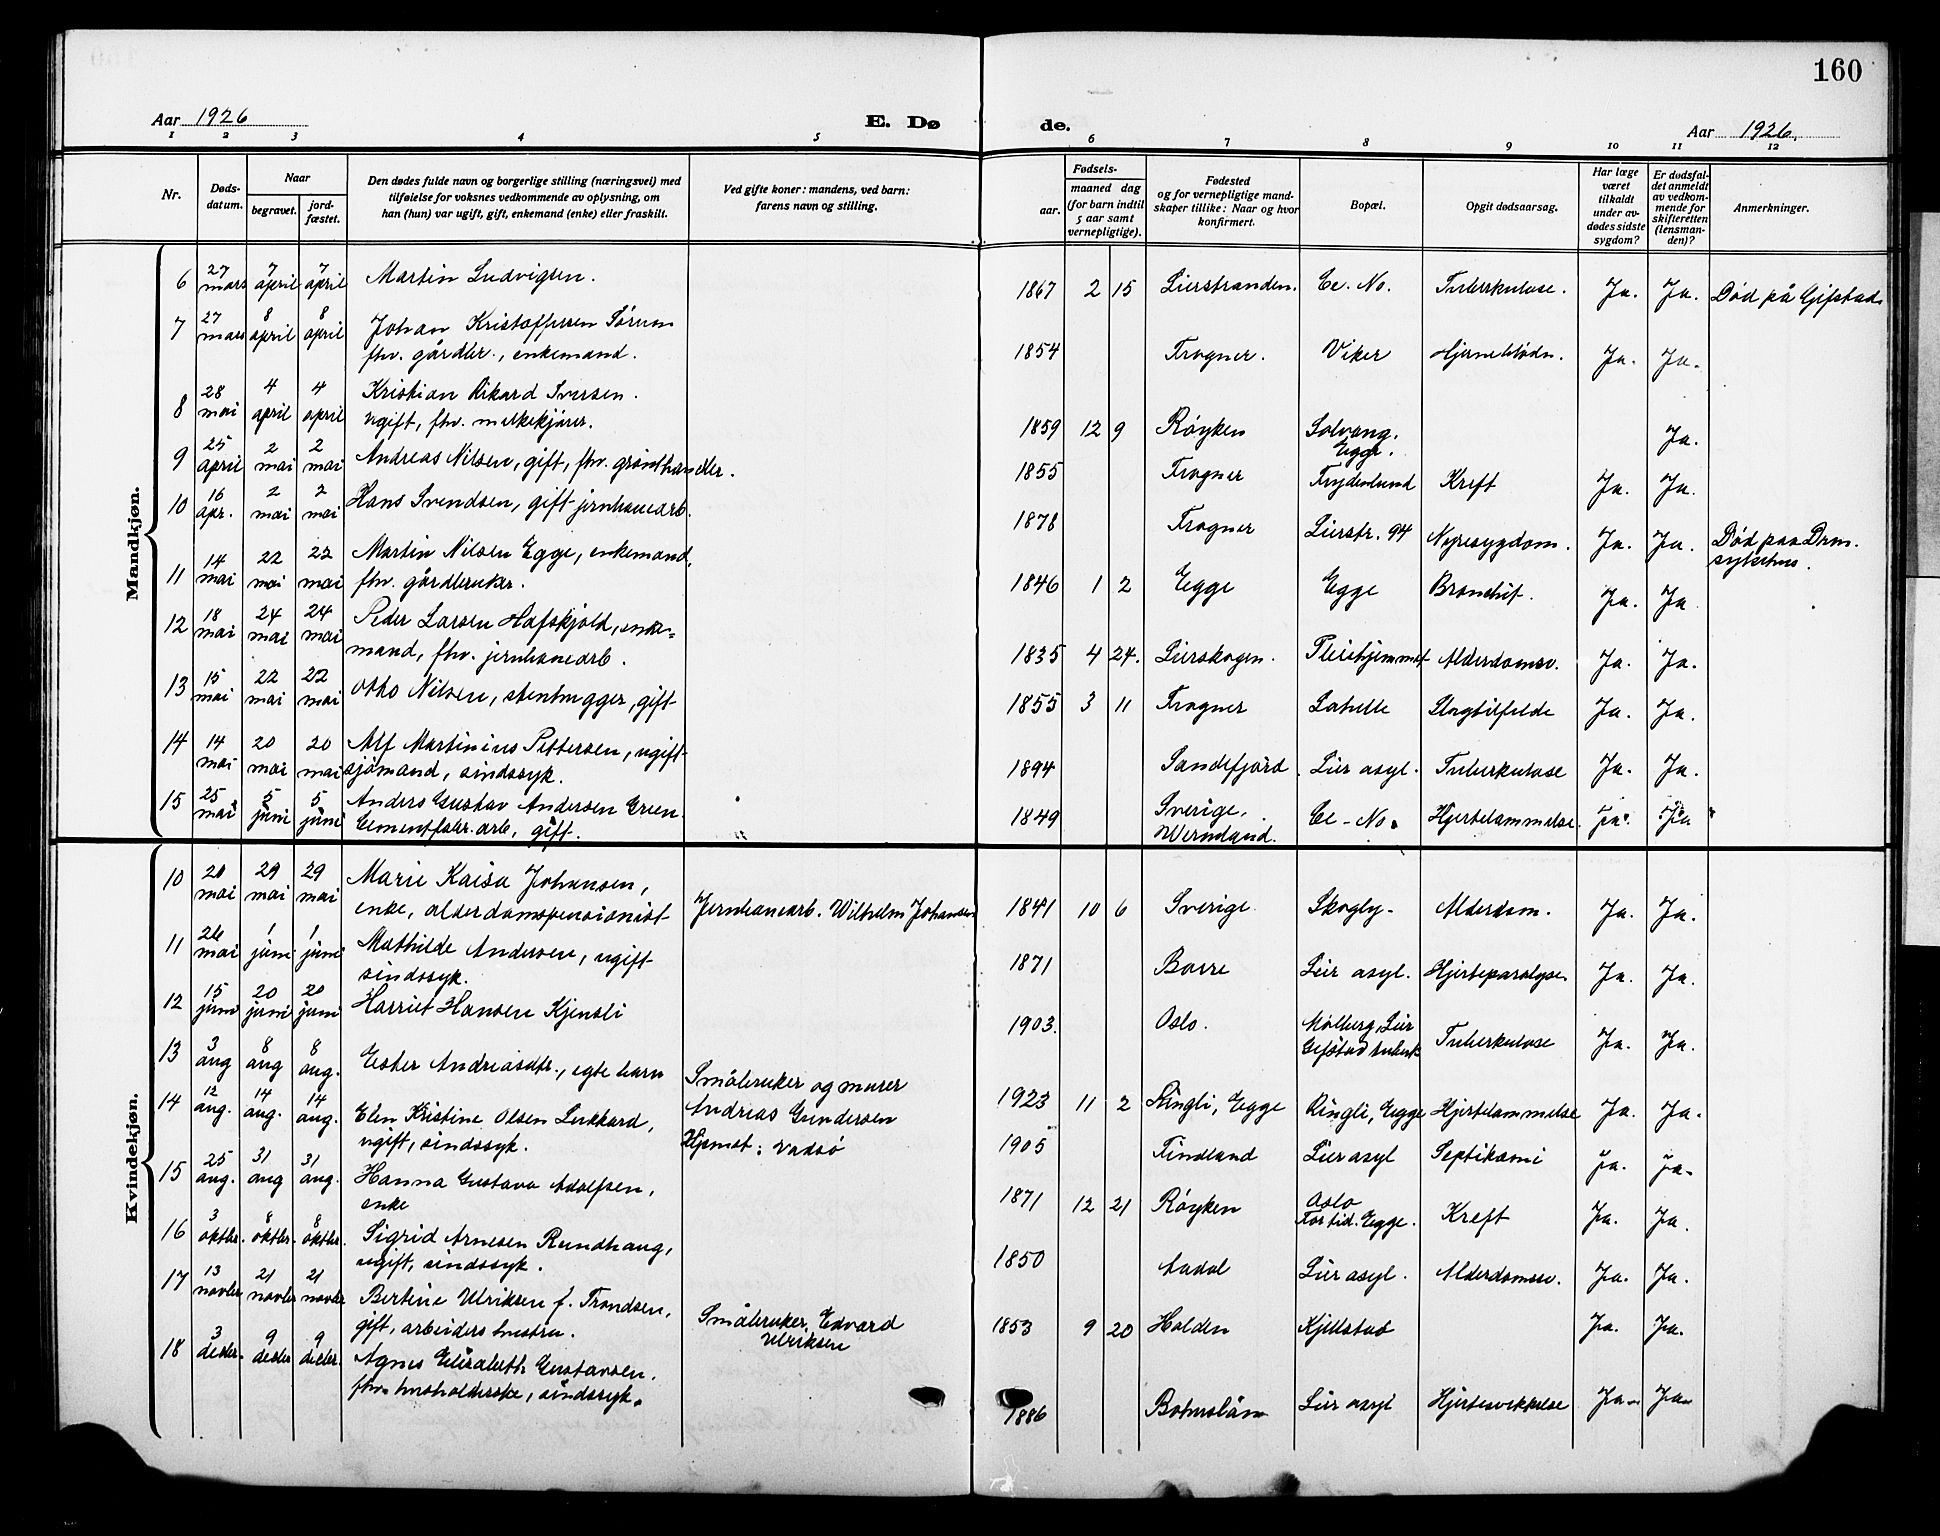 160
Aar 1926
E. Dø
de.
Aar 1926.
1 2 3 4 5 6 7 8 9 10 11 12
Nr.
Døds-
datum.
Naar
begravet.
jord-
fæstet.
Den dødes fulde navn og borgerlige stilling (næringsvei) med
tilføielse for voksnes vedkommende av oplysning, om
han (hun) var ugift, gift, enkemand (enke) eller fraskilt.
Ved gifte koner: mandens, ved barn:
farens navn og stilling.
Fødsels-
aar.
maaned dag
(for barn indtil
5 aar samt
vernepligtige).
Fødested
og for vernepligtige mand-
skaper tillike: Naar og hvor
konfirmert.
Bopæl.
Opgit dødsaarsag.
Har læge
været
tilkaldt
under av-
dødes sidste
sygdom?
Er dødsfal-
det anmeldt
av vedkom-
mende for
skifteretten
(lensman-
den)?
Anmerkninger.
Mandkjøn.
6 27 mars 7 april 7 april Martin Ludvigsen. 1867 2 15 Lierstranden. Ce. No. Tuberkulose. Ja. Ja. Død på Gifstad.
7 27 mars 8 april 8 april Johan Kristoffersen Sørum
fhv. gårdbr., enkemand. 1854 Frogner. Viker Hjerneblødn. Ja. Ja.
8 28 mai 4 april 4 april Kristian Rikard Iversen.
ugift, fhv. melkekjører. 1859 12 9 Røyken Solvang,
Egge. Ja.
9 25 april 2 mai 2 mai Andreas Nilsen, gift, fhv. grønthandler. 1855 Frogner Frydenlund Kreft Ja. Ja.
10 16 apr. 2 mai 2 mai Hans Svendsen, gift jernbanearb. 1878 Frogner Lierstr. 94 Nyresygdom. Ja. Ja. Død paa Drm.
sykehus.
11 14 mai 22 mai 22 mai Martin Nilsen Egge, enkemand,
fhv. gårdbruker. 1846 1 2 Egge Egge Bronchit. Ja. Ja
12 18 mai 24 mai 24 mai Peder Larsen Hafskjold, enke-
mand, fhv. jernbanearb. 1835 4 24. Lierskogen. Pleiehjemmet Alderdomsv. Ja. Ja.
13 15 mai 22 mai 22 mai Otto Nilsen, stenhugger, gift 1855 3 11 Frogner Labelle Slagtilfelde Ja. Ja.
14 14 mai 20 mai 20 mai Alf Martinius Pettersen, ugift
sjømand, sindssyk. 1894 Sandefjord. Lier asyl. Tuberkulose Ja. Ja.
15 25 mai 5 juni 5 juni Anders Gustav Andersen Green
Cementfabr. arb, gift. 1849 Sverige,
Wermland. Ce-No. Hjertelammelse. Ja. Ja
Kvindekjøn.
10 20 mai 29 mai 29 mai Marie Kaisa Johansen,
enke, alderdomspensionist Jernbanearb. Wilhelm Johansen 1841 10 6 Sverige Skogly- Alderdom. Ja. Ja.
11 26 mai 1 juni 1 juni Mathilde Andersen, ugift
sindssyk. 1871 Borre Lier asyl. Hjerteparalyse Ja. Ja.
12 15 juni 20 juni 20 juni Harriet Hansen Kjensli 1903. Oslo. Mølberg, Lier
Gifstad tuberk Tuberkulose Ja. Ja.
13 3 aug 8 aug 8 aug. Ester Andreasdtr., egte barn Småbruker og murer
Andreas Gundersen 1923 11 2 Ringli, Egge Ringli, Egge Hjertelammelse Ja. Ja.
14 12 aug. 14 aug. 14 aug. Elen Kristine Olsen Lukkard,
ugift, sindssyk. Hjemst: Vadsø 1905 Findland Lier asyl Septikæmi Ja. Ja.
15 25 aug. 31 aug 31 aug. Hanna Gustava Adolfsen,
enke 1871 12 21 Røyken Oslo
For tid. Egge. Kreft Ja. Ja.
16 3 oktbr. 8 oktbr. 8 oktbr. Sigrid Arnesen Rundhaug,
ugift, sindssyk. 1850 Aadal Lier asyl. Alderdomssv. Ja. Ja.
17 13 novbr 21 novbr 21 novbr Bertine Ulriksen f. Trondsen,
gift, arbeiders hustru. Småbruker, Edvard
Ulriksen 1853 9 20 Holden Kjellstad Ja. Ja.
18 3 desbr. 9 desbr 9 desbr. Agnes Elisabeth Gustavsen.
fhv. husholderske, sindssyk. 1886 Lier asyl Hjertesvekkelse Ja. Ja.